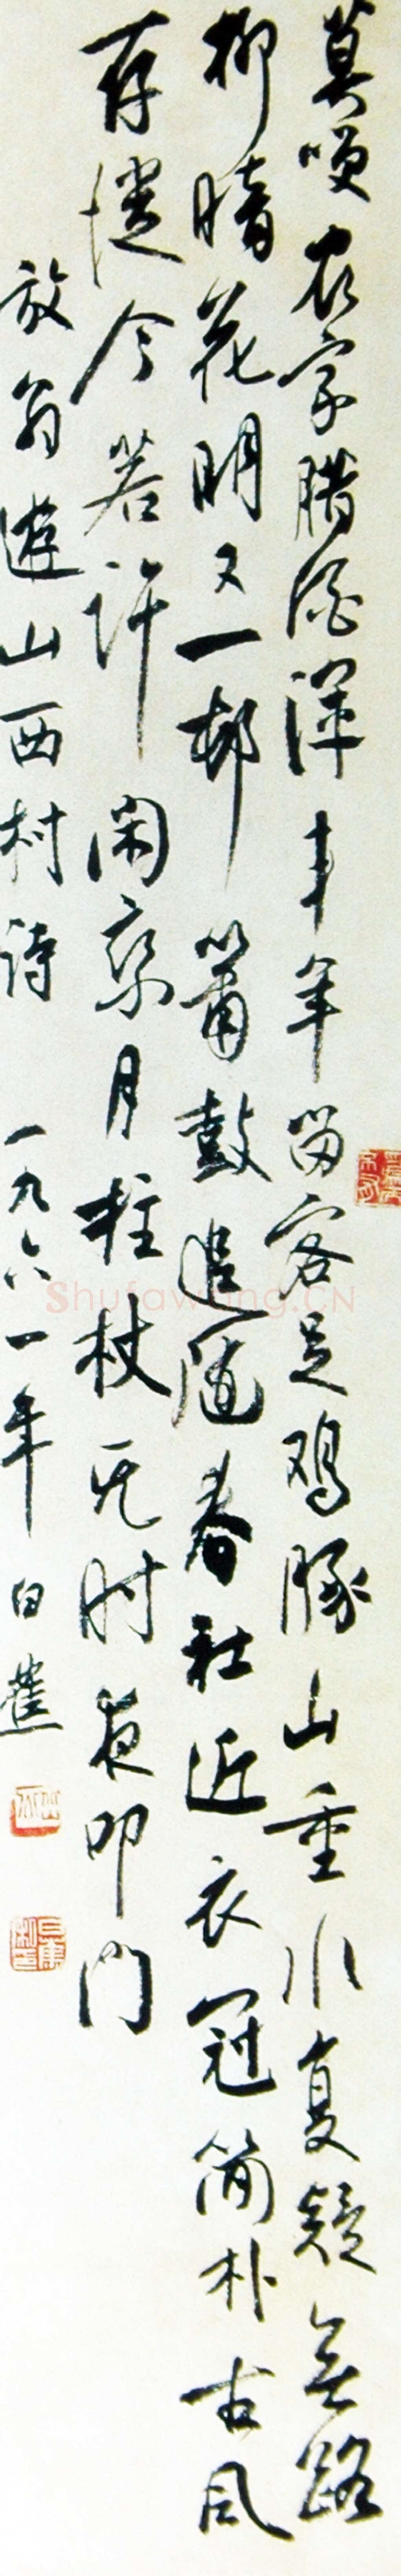 莫嘆農家臘酒渾丰年留客足鸡豚山重水复疑無路
柳暗花明又一邨簫鼓追随春社近衣冠简朴古風
存從今若許闲乘月拄杖无时夜叩门
放翁遊山西村诗 一九六一年 白蕉
Shufawang.CN